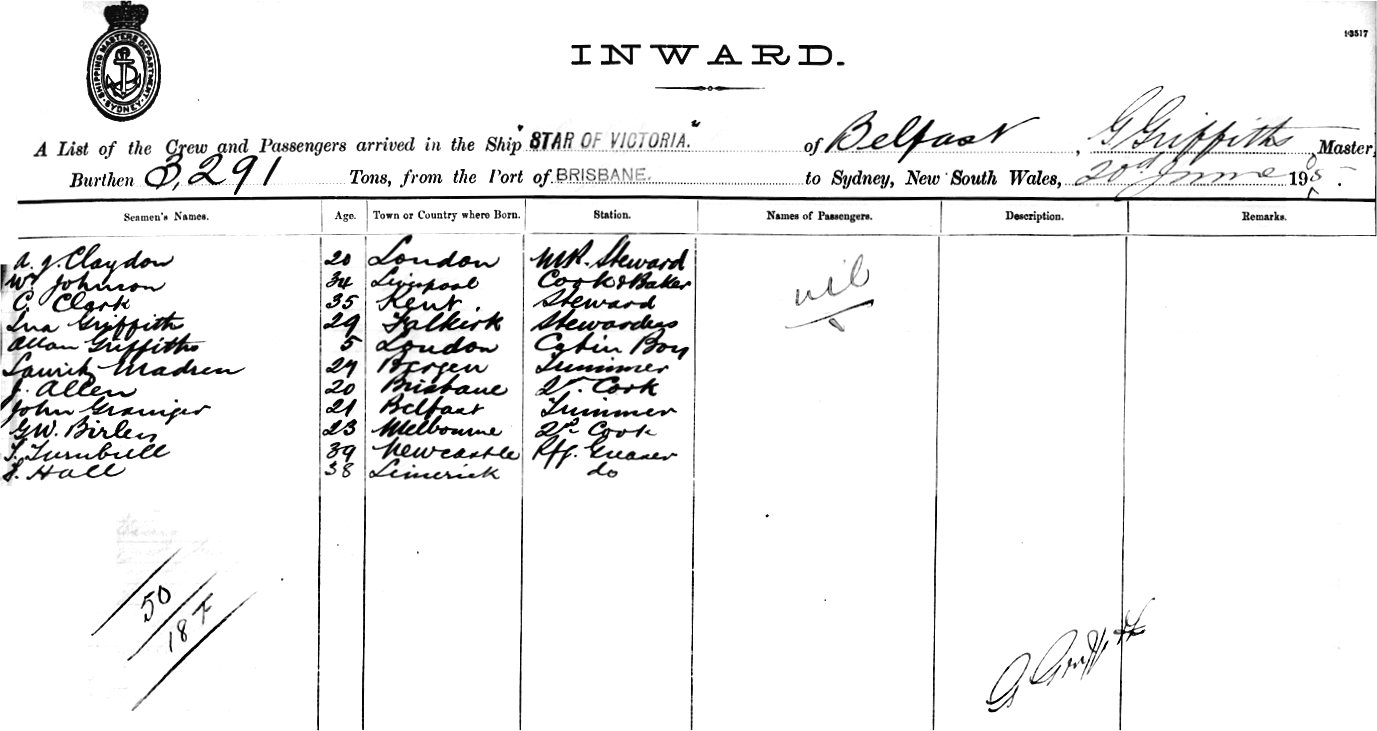 SHIPPING MASTERS DEPARTMENT
SYDNEY
13517
INWARD.
A List of the Crew and Passengers arrived in the Ship "STAR OF VICTORIA." of Belfast, G Griffiths Master,
Burthen 3,291 Tons, from the Port of BRISBANE. to Sydney, New South Wales, 20d June 190
Seamen's Names. Age. Town or Country where Born. Station. Names of Passengers. Description. Remarks.
A. J. Claydon 20 London M.R. Steward
Wm Johnson 34 Liverpool Cook & Baker nil
C. Clark 35 Kent. Steward
Ina Griffith 29 Falkirk Stewardess
Allan Griffiths 5 London Cabin Boy
Lauritz Madsen 24 Bergen Trimmer
J. Allen 20 Brisbane 2nd Cook
John Grainger 21 Belfast Trimmer
G.W. 23 Melbourne 2nd Cook
T. Turnbull 39 Newcastle Rfg. Greaser
Hall 38 Limerick do
50
18 F
G Griffiths